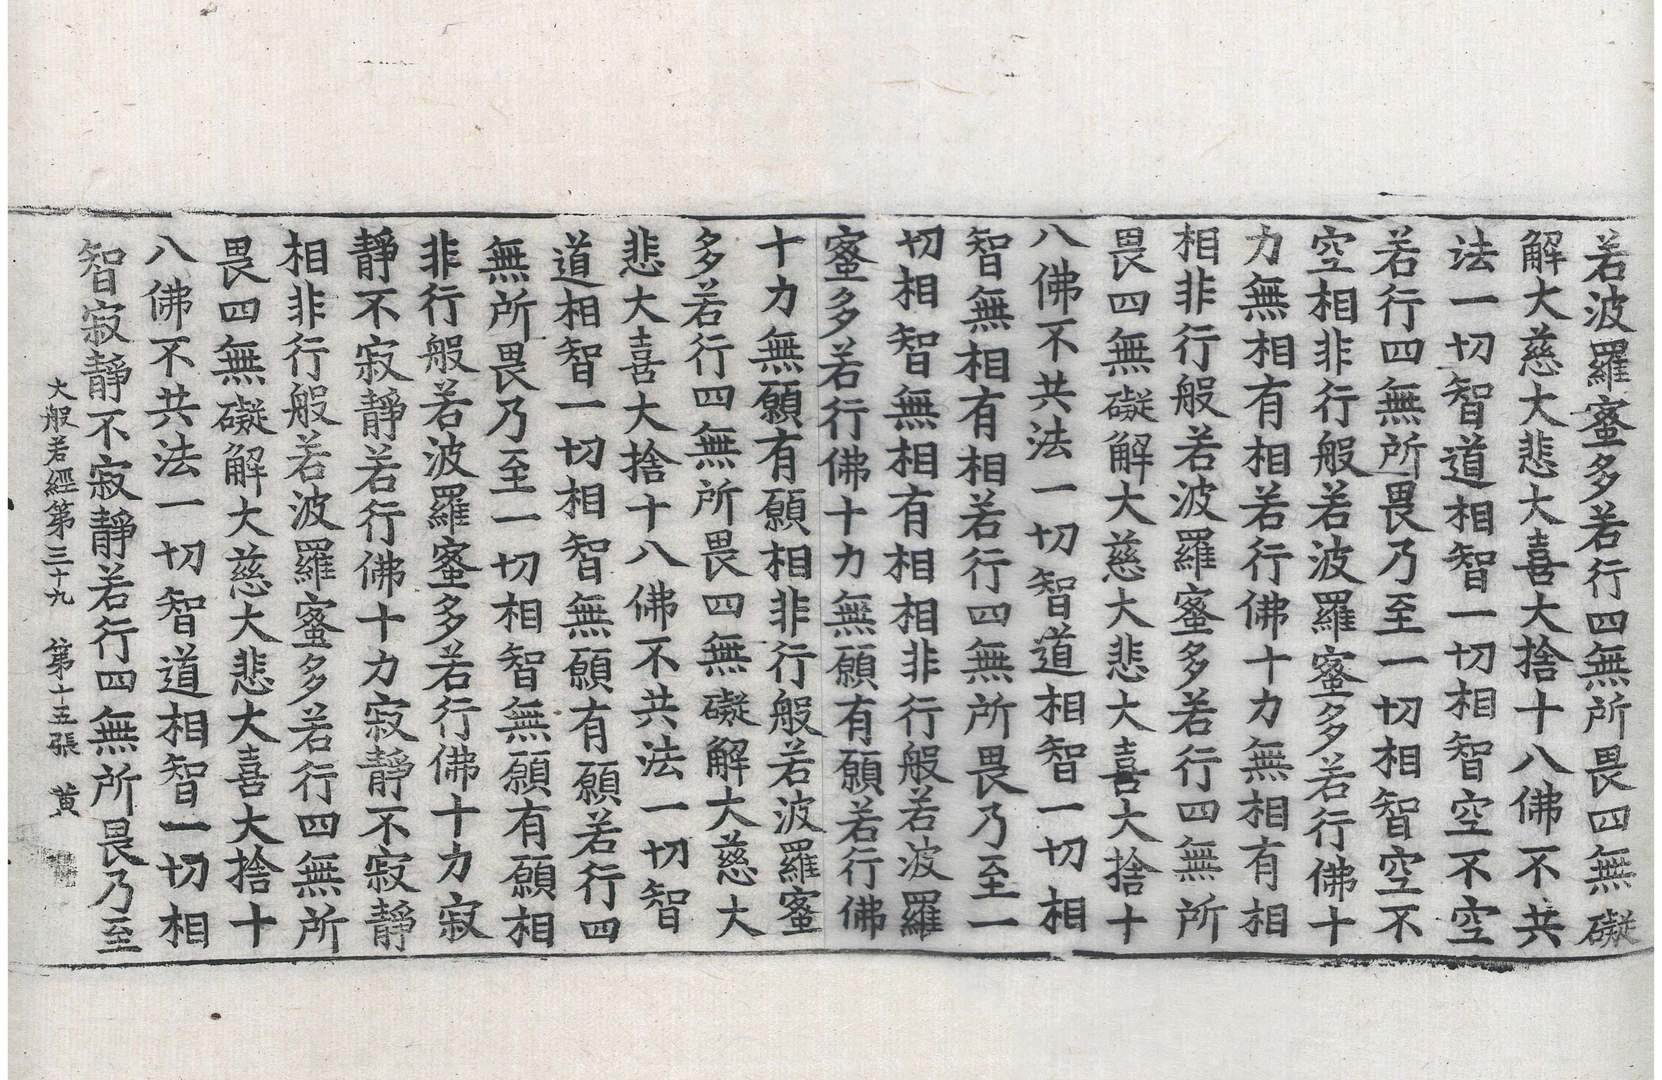 若波羅蜜多若行四無所畏四無礙
解大慈大悲大喜大捨十八佛不共
法一切智道相智一切相智空不空
若行四無所畏乃至一切相智空不
空相非行般若波羅蜜多若行佛十
力無相有相若行佛十力無相有相
相非行般若波羅蜜多若行四無所
畏四無礙解大慈大悲大喜大捨十
八佛不共法一切智道相智一切相
智無相有相若行四無所畏乃至一
切相智無相有相相非行般若波羅
蜜多若行佛十力無願有願若行佛
十力無願有願相非行般若波羅蜜
多若行四無所畏四無礙解大慈大
悲大喜大捨十八佛不共法一切智
道相智一切相智無願有願若行四
無所畏乃至一切相智無願有願相
非行般若波羅蜜多若行佛十力寂
靜不寂靜若行佛十力寂靜不寂靜
相非行般若波羅蜜多若行四無所
畏四無礙解大慈大悲大喜大捨十
八佛不共法一切智道相智一切相
智寂靜不寂靜若行四無所畏乃至
大般若經第三十九 第十五張 黄